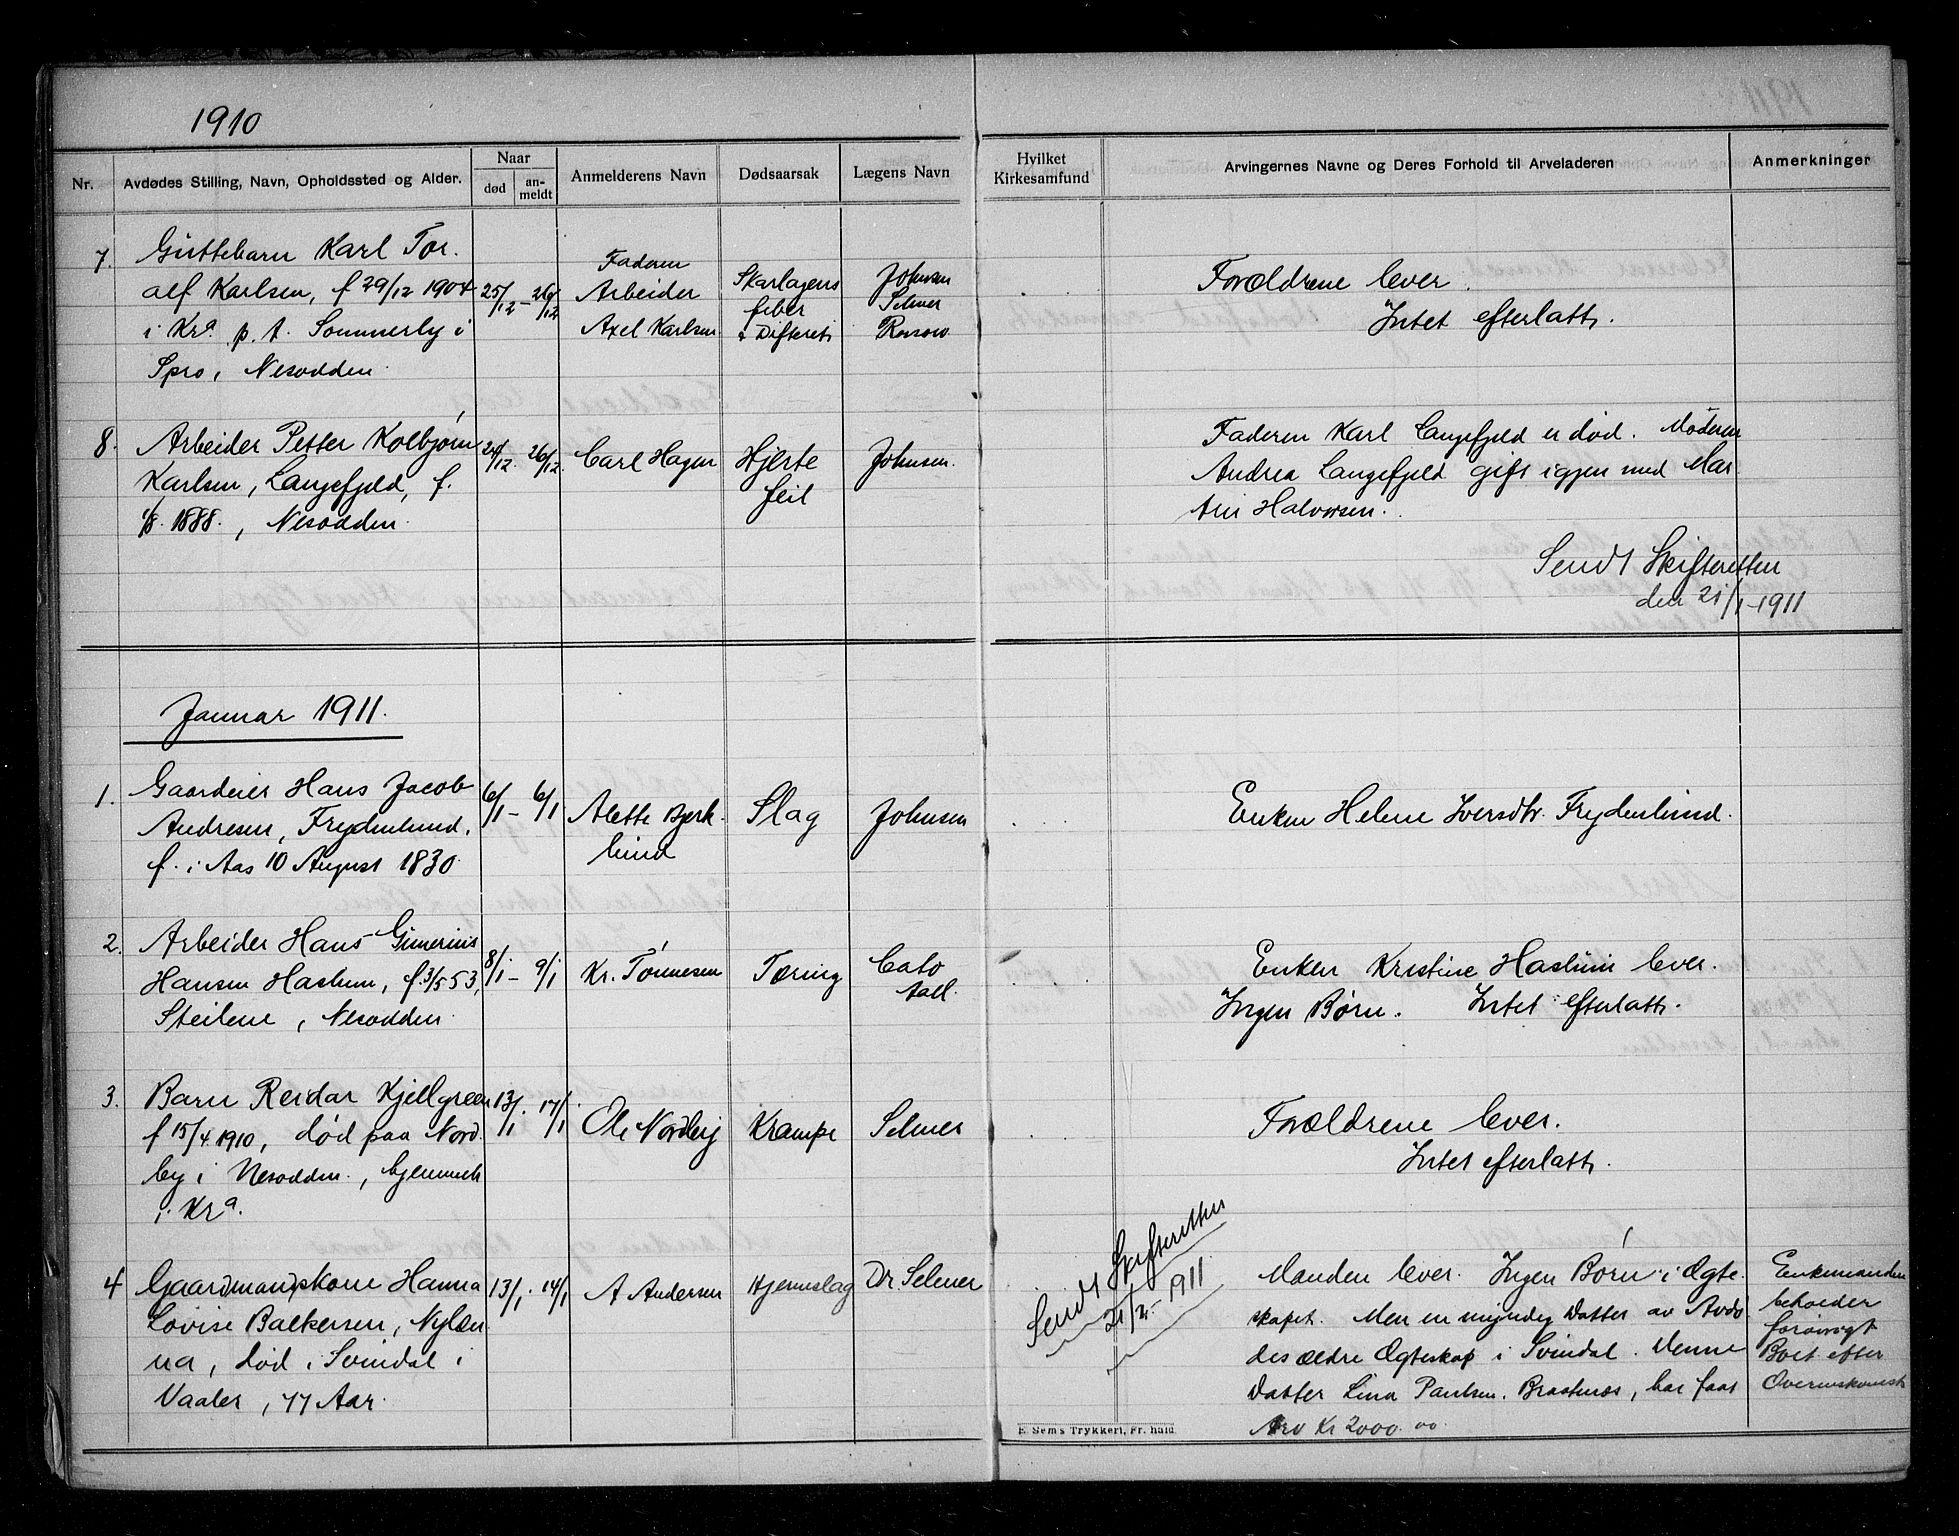 1910
Nr.
Avdødes Stilling, Navn, Opholdssted og Alder.
Naar
død
an-
meldt
Anmelderens Navn
Dødsaarsak
Lægens Navn
Hvilket
Kirkesamfund
Arvingernes Navne og Deres Forhold til Arveladeren
Anmerkninger
7. Guttebarn Karl Tor-
alf Karlsen, f 29/12 1904
i Kra p. t. Sommerby i
Spro, Nesodden.
25/12 - 26/12
Faderen
Arbeider
Axel Karlsen
Skarlagens
feber
& Difterit
Johnsen
Selmer
Forældrene lever.
Intet efterlatt.
8. Arbeider Petter Kolbjørn
Karlsen, Langefjeld, f.
1/8. 1888., Nesodden.
24/12. 26/12.
Carl Hagen
Hjerte
feil
Johnsen.
Faderen Karl Langefjeld er død. Moderen
Andrea Langefjeld gift igjen med Mar
tin Halvorsen.
Sendt Skifteretten
den 21/1 - 1911
Januar 1911.
1. Gaardeier Hans Jacob
Andresen, Frydenlund,
f. i Aas 10 August 1830.
6/1 - 6/1
Alette Bjerk-
lund
Slag
Johnsen
Enken Helene Iversdtr. Frydenlund.
2. Arbeider Hans Gunerius
Hansen Haslum, f. 3/5 53,
Steilene, Nesodden.
8/1 - 9/1
Kr. Tønnesen
Tæring
Cato
Aall.
Enken Kristine Haslum lever.
Ingen Børn. Intet efterlatt.
3. Barn Reidar Kjellgreen
f 15/4. 1910, død paa Nord
by i Nesodden., hjemmeh
i Kra.
13/1. 17/1
Ole Nordby
Krampe
Selmer
Forældrene lever.
Intet efterlatt.
4 Gaardmandskone Hanna
Lovise Balkersen, Nylæn
na, død i Svindal i
Vaaler, 77 Aar.
13/1. 14/1
A Andersen
Hjerneslag
Dr. Selmer
Sendt Skifteretten
21/2 - 1911
Manden lever. Ingen Børn i Ægte-
skapet. Men en myndig Datter av Avdø
des ældre Ægteskap i Svindal. Denne
Datter Lina Paulsen. Braatenæs, har faat
Arv Kr 2000.00
Enkemanden
beholder
forøvrigt
Boet efter
Overenskomst
E. Sem's Trykkeri, Fr. hald.